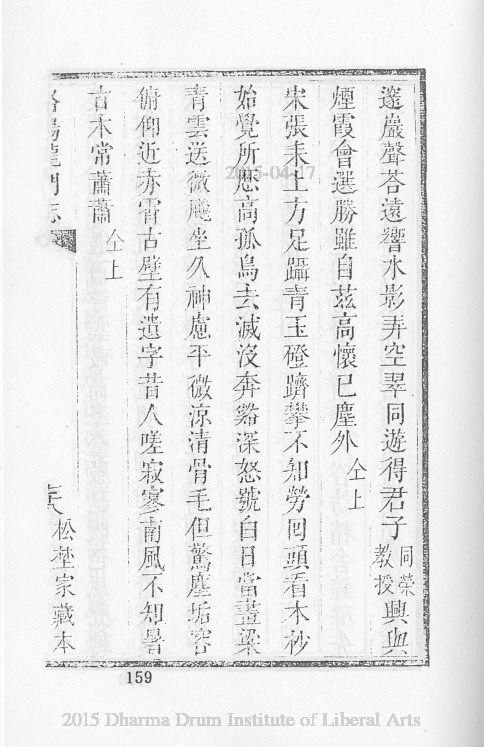 邃巖聲荅遠響水影弄空翠同遊得君子同榮教授興與
煙霞會選勝雖自茲高懷已塵外仝上
宋張耒上方足躡青玉磴躋攀不知勞囘頭看木杪
始覺所歷高孤鳥去滅沒奔谿深怒號白日當晝梁
青雲送微飈坐久神慮平微涼清骨毛但驚塵垢容
俯仰近赤霄古壁有遺字昔人嗟寂寥南風不知暑
古木常蕭蕭仝上
洛陽龍門志
松埜家藏本
159
2015-04-17
2015 Dharma Drum Institute of Liberal Arts